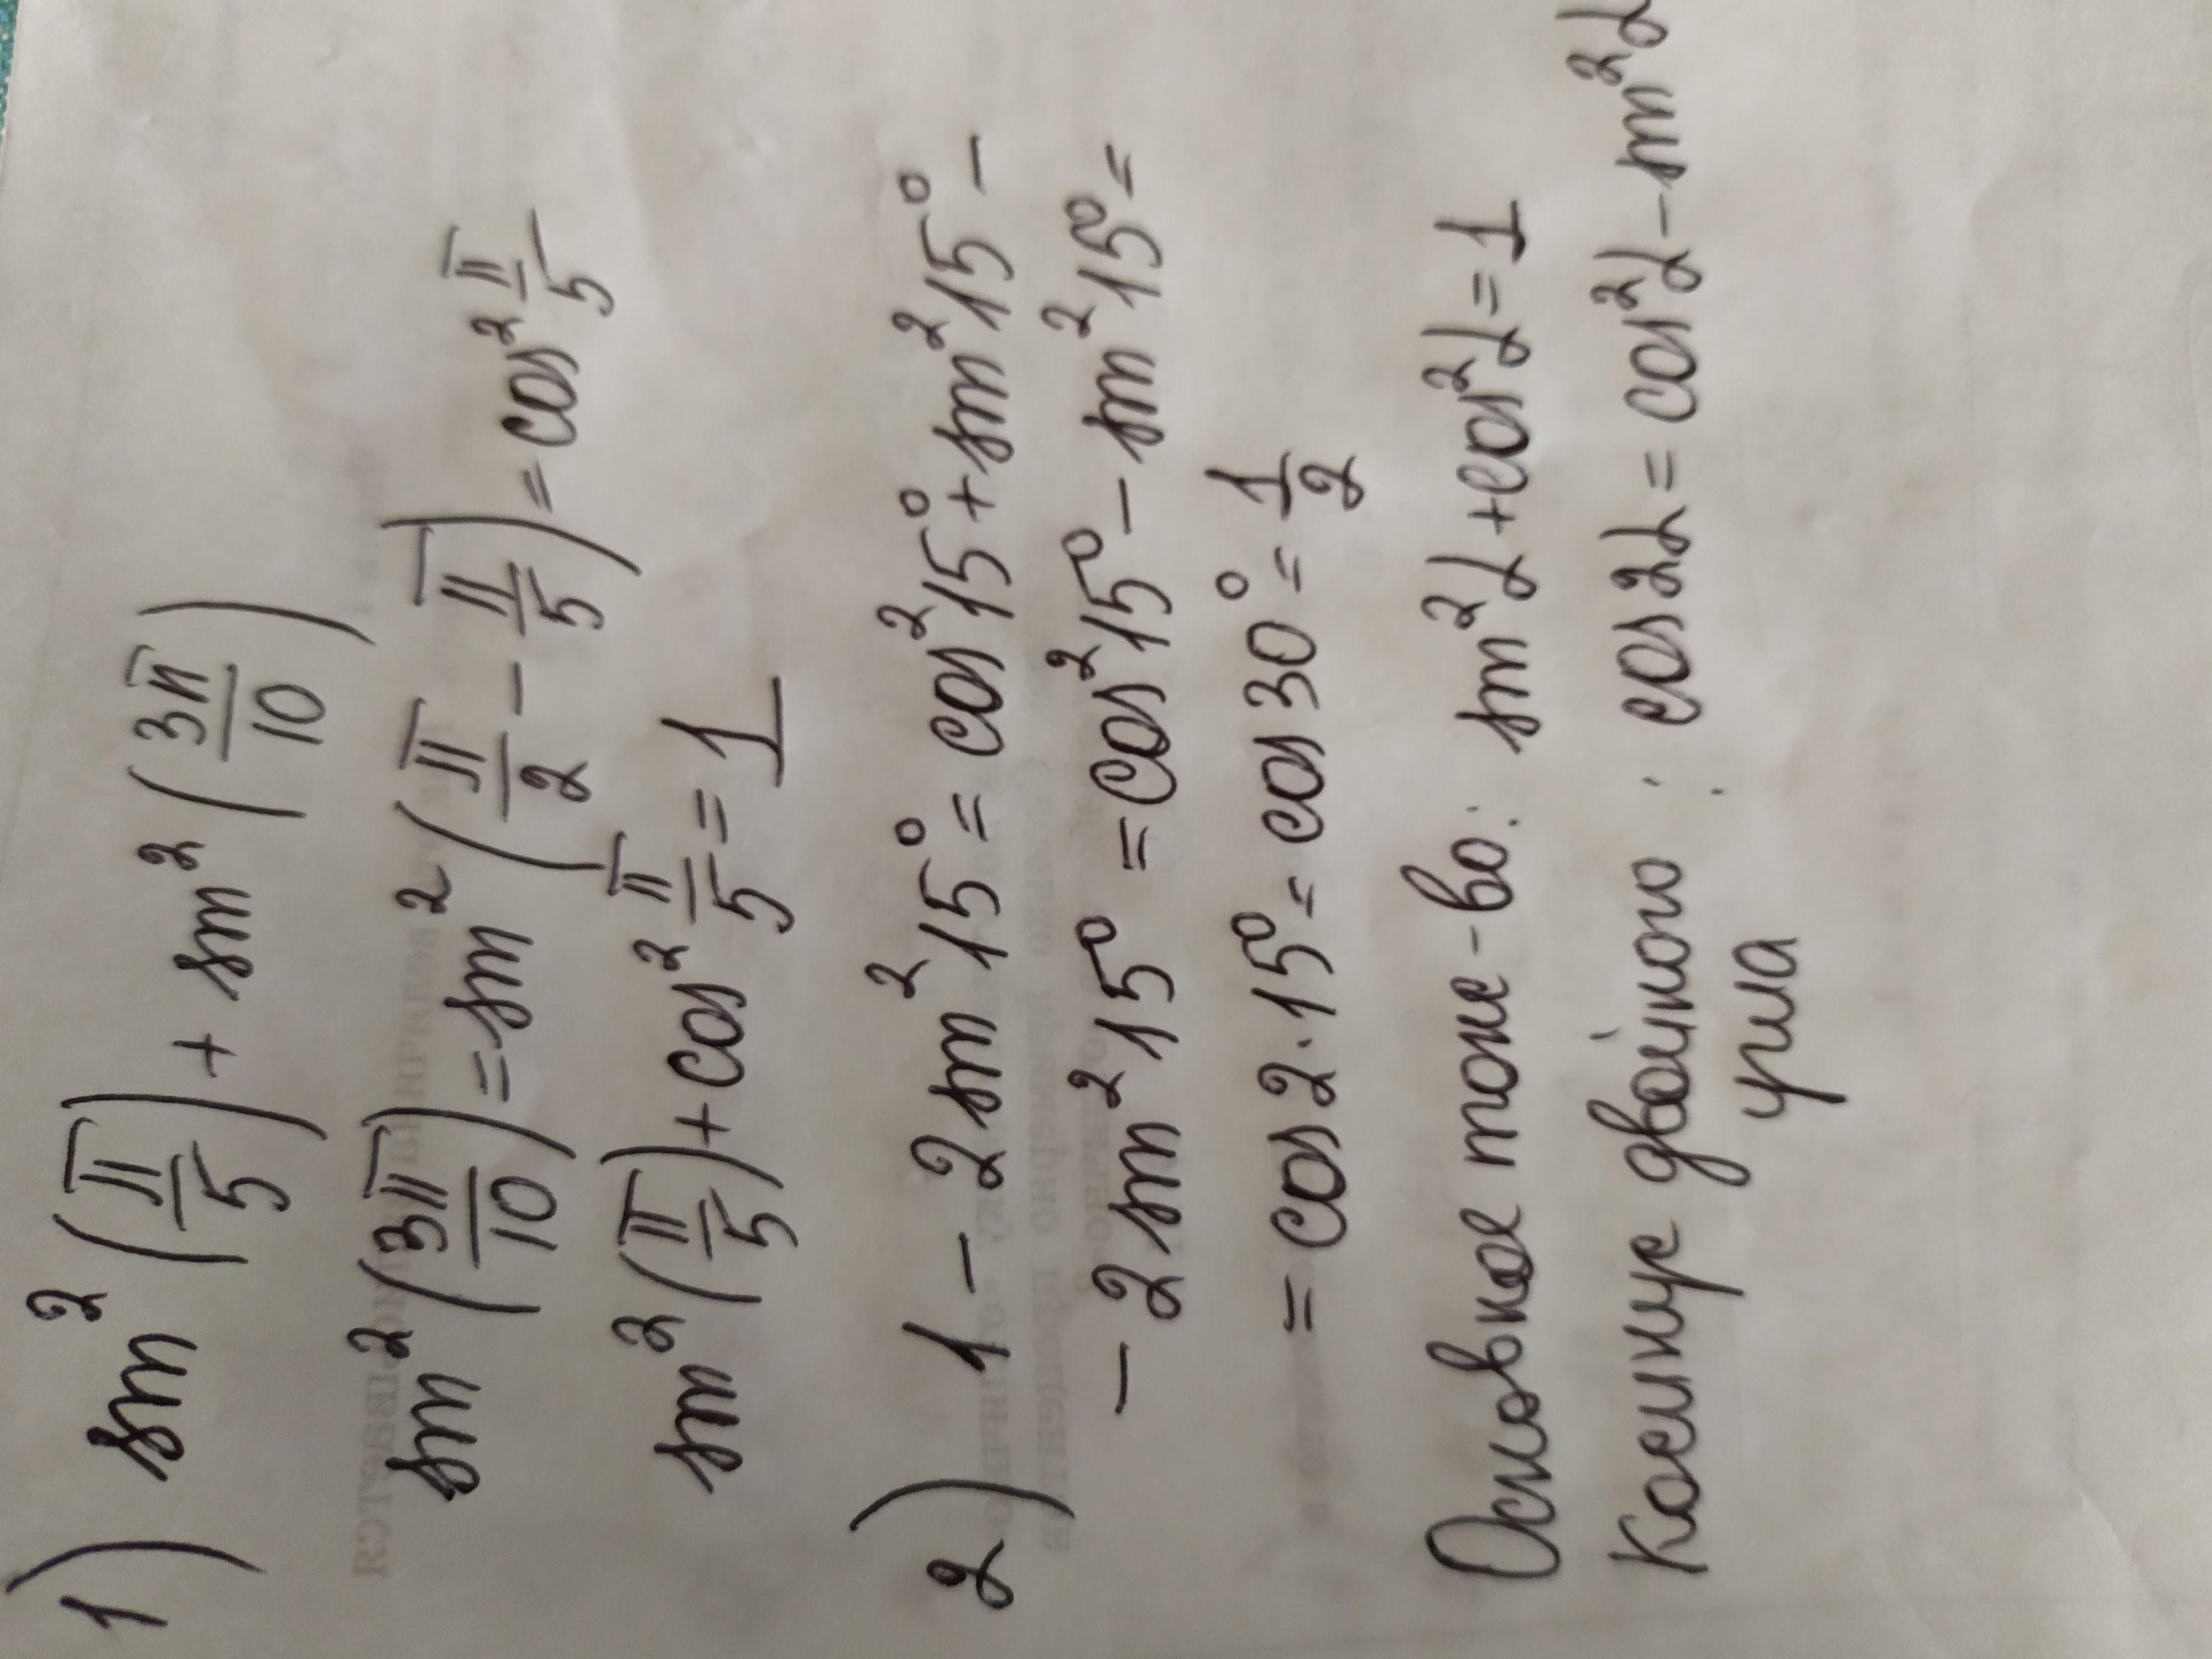 1) sin²(π/5) + sin²(3π/10)
sin²(3π/10) = sin²(π/2 - π/5) = cos² π/5
sin²(π/5) + cos² π/5 = 1
2) 1 - 2 sin² 15° = cos² 15° + sin² 15° -
- 2 sin² 15° = cos² 15° - sin² 15° =
= cos 2 · 15° = cos 30° = 1/2
Основное тож-во: sin²α + cos²α = 1
Косинус двойного : cos 2α = cos²α - sin²α
угла